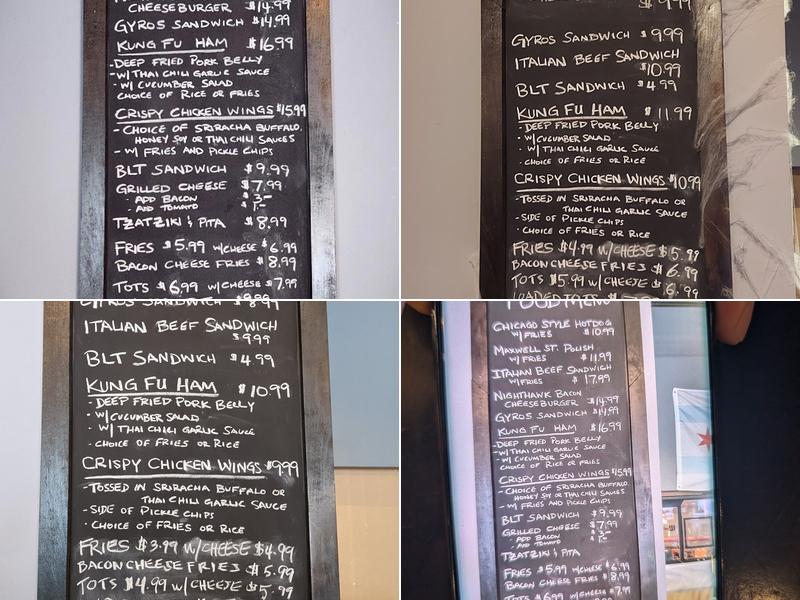 CHEESEBURGER $14.99
GYROS SANDWICH $14.99
KUNG FU HAM $16.99
-DEEP FRIED PORK BELLY
- W/ THAI CHILI GARLIC SAUCE
- W/ CUCUMBER SALAD
CHOICE OF RICE OR FRIES
CRISPY CHICKEN WINGS $15.99
- CHOICE OF SRIRACHA BUFFALO,
HONEY SOY OR THAI CHILI SAUCES
- W/ FRIES AND PICKLE CHIPS
BLT SANDWICH $9.99
GRILLED CHEESE $7.99
- ADD BACON $3-
- ADD TOMATO $1-
TZATZIKI & PITA $8.99
FRIES $5.99 W/CHEESE $6.99
BACON CHEESE FRIES $8.99
TOTS $6.99 W/CHEESE $7.99
$9.99
GYROS SANDWICH $9.99
ITALIAN BEEF SANDWICH
$10.99
BLT SANDWICH $4.99
KUNG FU HAM $11.99
- DEEP FRIED PORK BELLY
- W/CUCUMBER SALAD
- W/ THAI CHILI GARLIC SAUCE
- CHOICE OF FRIES OR RICE
CRISPY CHICKEN WINGS $10.99
- TOSSED IN SRIRACHA BUFFALO OR
THAI CHILI GARLIC SAUCE
- SIDE OF PICKLE CHIPS
- CHOICE OF FRIES OR RICE
FRIES $4.99 W/CHEESE $5.99
BACON CHEESE FRIES $6.99
TOTS $5.99 W/CHEESE $6.99
GYROS SANDWICH $8.99
ITALIAN BEEF SANDWICH
$9.99
BLT SANDWICH $4.99
KUNG FU HAM $10.99
- DEEP FRIED PORK BELLY
- W/CUCUMBER SALAD
- W/ THAI CHILI GARLIC SAUCE
- CHOICE OF FRIES OR RICE
CRISPY CHICKEN WINGS $9.99
- TOSSED IN SRIRACHA BUFFALO OR
THAI CHILI GARLIC SAUCE
- SIDE OF PICKLE CHIPS
- CHOICE OF FRIES OR RICE
FRIES $3.99 W/CHEESE $4.99
BACON CHEESE FRIES $5.99
TOTS $4.99 W/CHEESE $5.99
FOOD MENU
CHICAGO STYLE HOTDOG
W/ FRIES $10.99
MAXWELL ST. POLISH
W/ FRIES $11.99
ITALIAN BEEF SANDWICH
W/FRIES $17.99
NIGHTHAWK BACON
CHEESEBURGER $14.99
GYROS SANDWICH $14.99
KUNG FU HAM $16.99
-DEEP FRIED PORK BELLY
- W/ THAI CHILI GARLIC SAUCE
- W/ CUCUMBER SALAD
CHOICE OF RICE OR FRIES
CRISPY CHICKEN WINGS $15.99
- CHOICE OF SRIRACHA BUFFALO,
HONEY SOY OR THAI CHILI SAUCES
- W/ FRIES AND PICKLE CHIPS
BLT SANDWICH $9.99
GRILLED CHEESE $7.99
- ADD BACON $3-
- ADD TOMATO $1-
TZATZIKI & PITA
FRIES $5.99 W/CHEESE $6.99
BACON CHEESE FRIES $8.99
TOTS $6.99 W/CHEESE $7.99